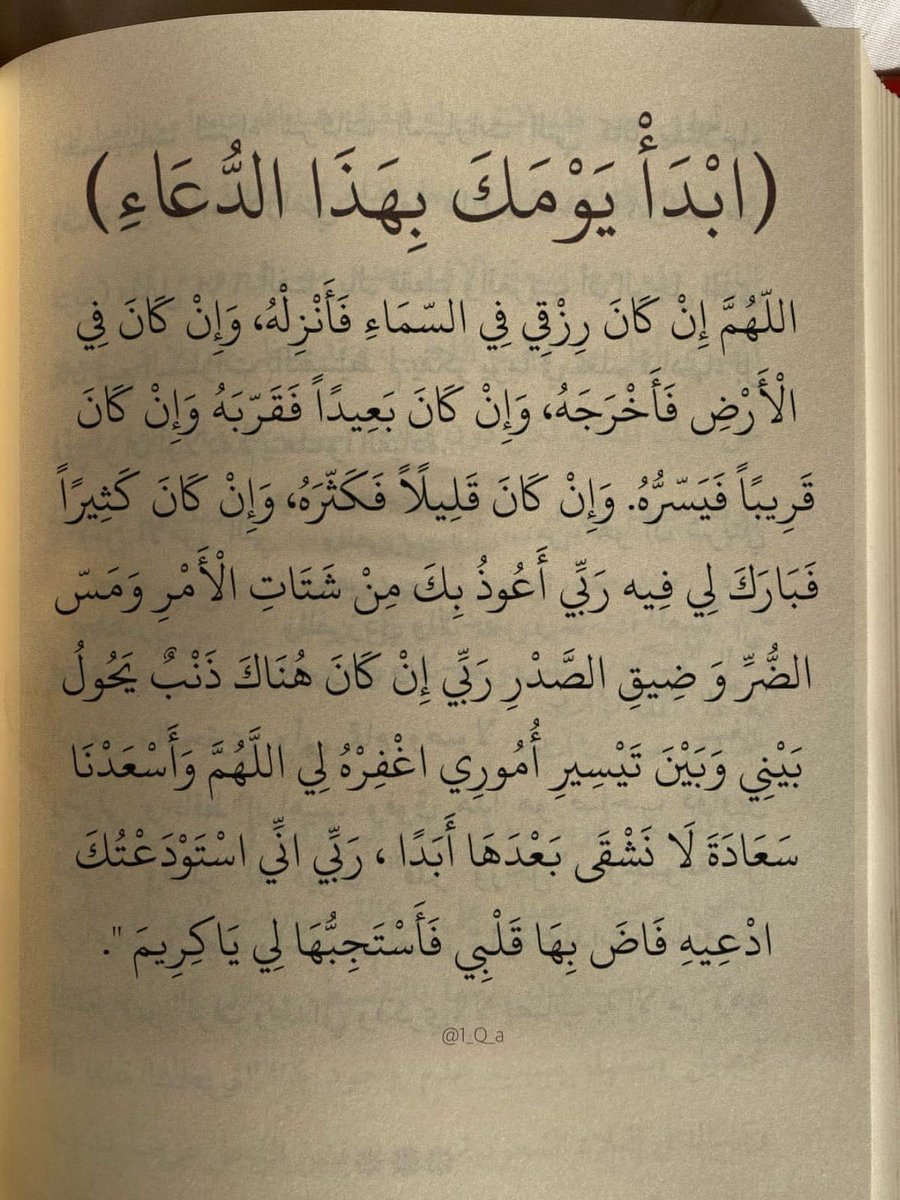 (ابْدَأْ يَوْمَكَ بِهَذَا الدُّعَاءِ)
اللّهُمَّ إِنْ كَانَ رِزْقِي فِي السّمَاءِ فَأَنْزِلْهُ، وَإِنْ كَانَ فِي
الْأَرْضِ فَأَخْرَجَهُ، وَإِنْ كَانَ بَعِيدًاً فَقَرّبَهُ وَإِنْ كَانَ
قَرِيبًاً فَيَسّرُّهُ. وَإِنْ كَانَ قَلِيلًاً فَكَثّرَهُ، وَإِنْ كَانَ كَثِيرًاً
فَبَارَكَ لِي فِيه رَبِّي أَعُوذُ بِكَ مِنْ شَتَاتِ الْأَمْرِ وَمَسّ
الضُّرِّ وَ ضِيقِ الصَّدْرِ رَبِّي إِنْ كَانَ هُنَاكَ ذَنْبٌ يَحُولُ
بَيْنِي وَبَيْنَ تَيْسِيرِ أُمُورِي اغْفِرْهُ لِي اللَّهُمَّ وَأَسْعَدْنَا
سَعَادَةَ لَا نَشْقَى بَعْدَهَا أَبَدًا ، رَبِّي انِّي اسْتَوْدَعْتُكَ
ادْعِيهِ فَاضَ بِهَا قَلْبِي فَأَسْتَجِبُّهَا لِي يَا كِرِيمَ ".
@1_Q_a